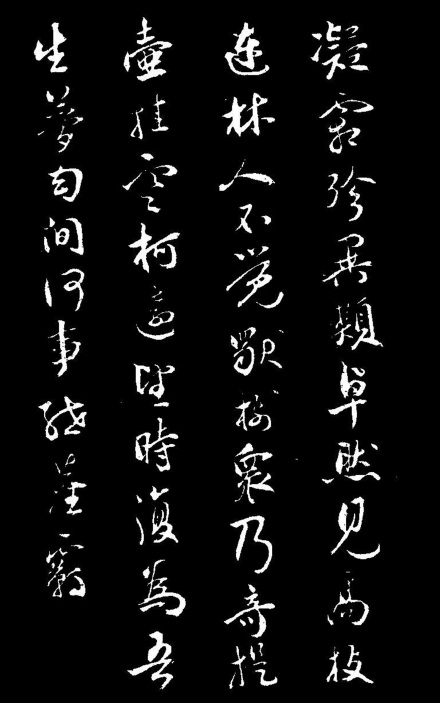 凝霜殄異類卓然見高枝
連林人不覺獨樹衆乃奇提
壺挂寒柯遠望時復為吾
生夢幻間何事紲塵羈